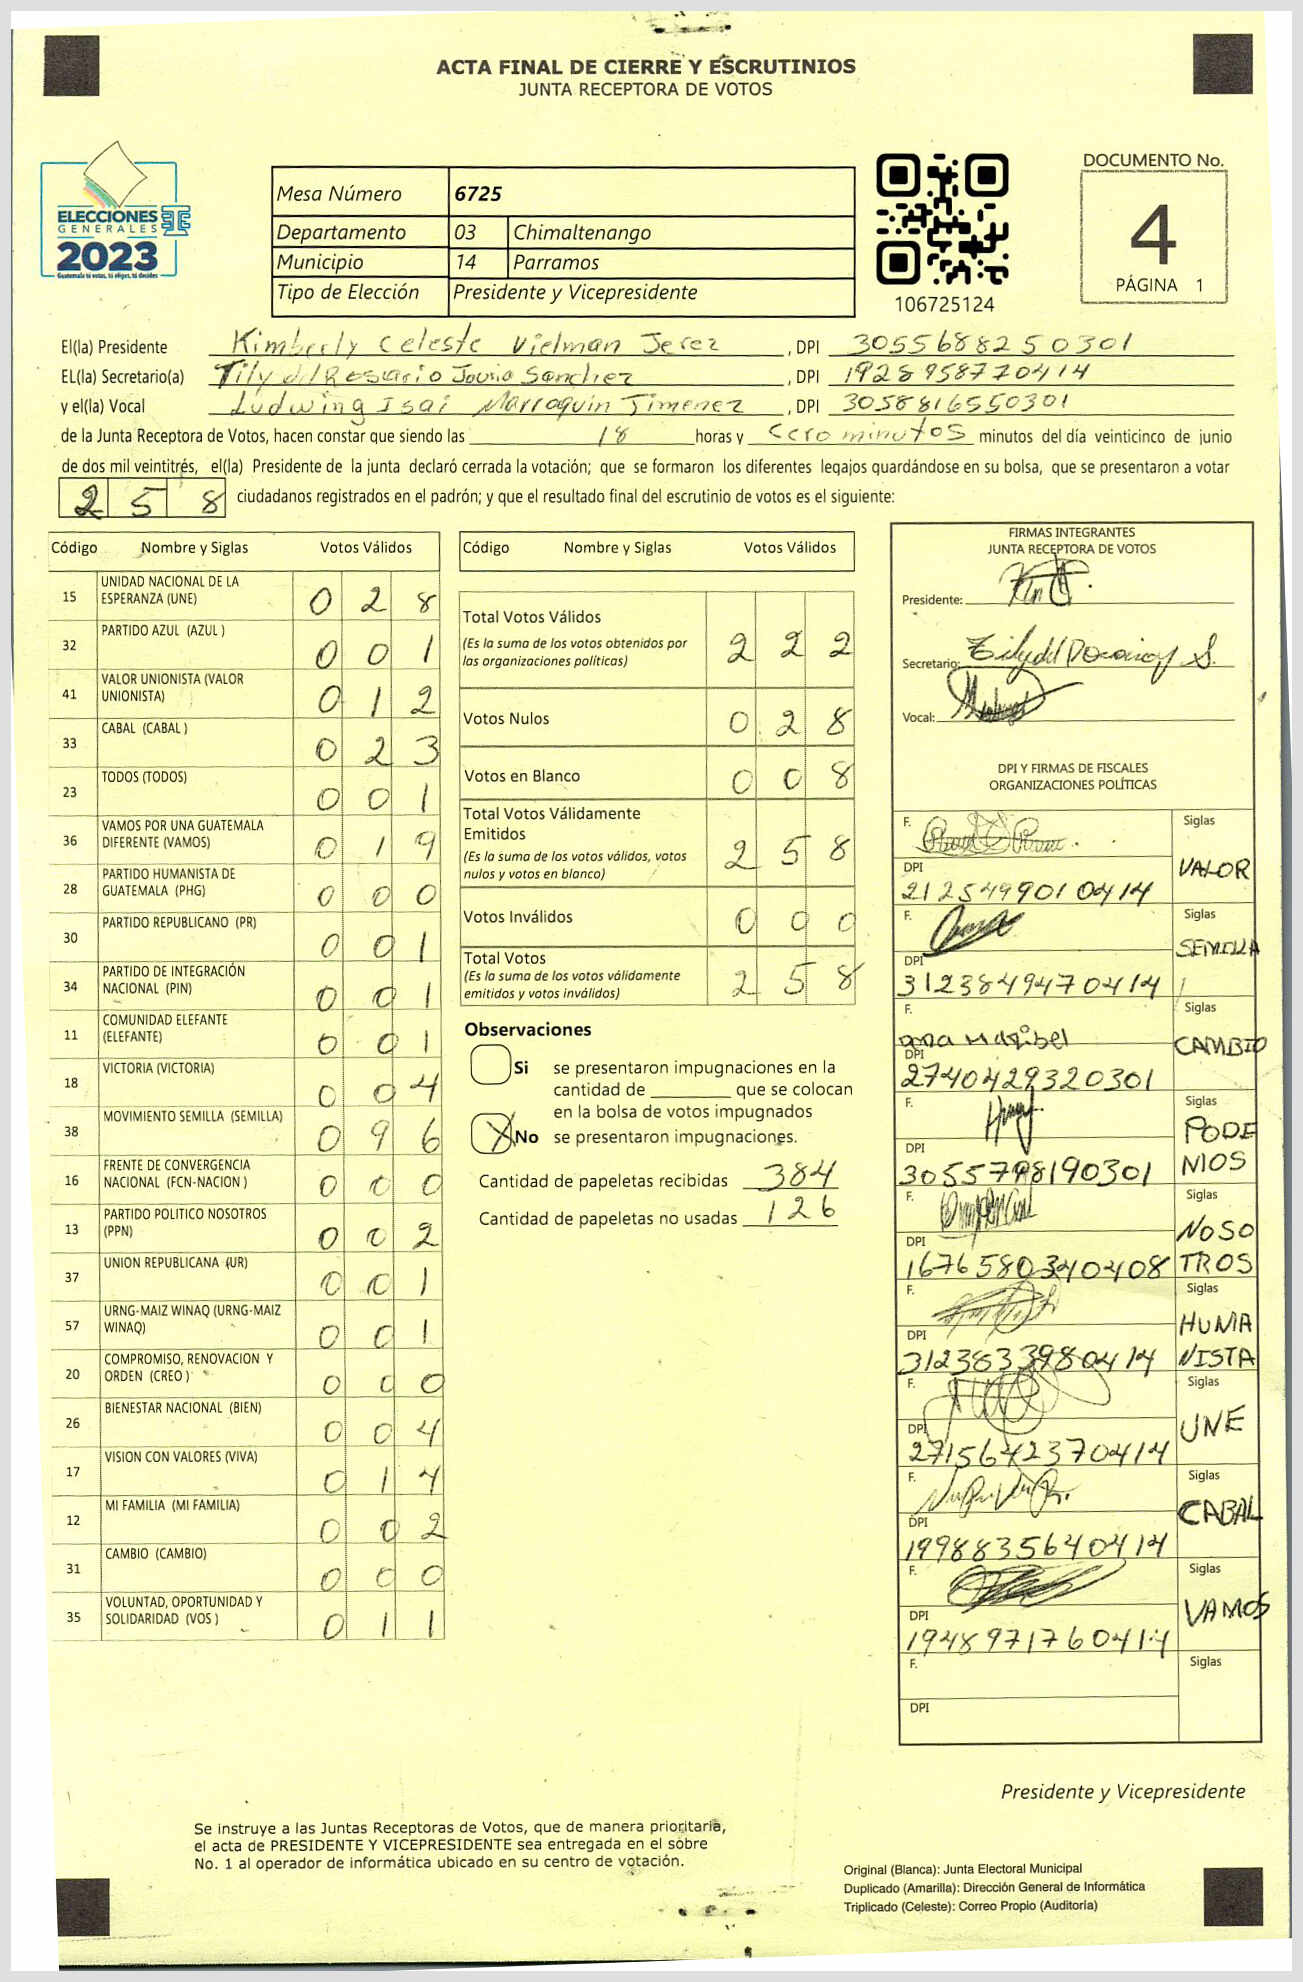 ACTA FINAL DE CIERRE Y ESCRUTINIOS
JUNTA RECEPTORA DE VOTOS
ELECCIONES
GENERALES
2023
Guatemala tú votas, tú eliges, tú decides
Mesa Número 6725
Departamento 03 Chimaltenango
Municipio 14 Parramos
Tipo de Elección Presidente y Vicepresidente
106725124
DOCUMENTO No.
4
PÁGINA 1
El(la) Presidente Kimberly Celeste Vielman Jerez , DPI 3055688250301
EL(la) Secretario(a) Tily del Rosario Sanchez , DPI 1928958770414
y el(la) Vocal Ludwing Isai Marroquin Jimenez , DPI 3058816550301
de la Junta Receptora de Votos, hacen constar que siendo las 18 horas y cero minutos minutos del día veinticinco de junio
de dos mil veintitrés, el(la) Presidente de la junta declaró cerrada la votación; que se formaron los diferentes legajos guardándose en su bolsa, que se presentaron a votar
2 5 8 ciudadanos registrados en el padrón; y que el resultado final del escrutinio de votos es el siguiente:
Código Nombre y Siglas Votos Válidos
15 UNIDAD NACIONAL DE LA
ESPERANZA (UNE) 0 2 8
32 PARTIDO AZUL (AZUL ) 0 0 1
41 VALOR UNIONISTA (VALOR
UNIONISTA) 0 1 2
33 CABAL (CABAL ) 0 2 3
23 TODOS (TODOS) 0 0 1
36 VAMOS POR UNA GUATEMALA
DIFERENTE (VAMOS) 0 1 9
28 PARTIDO HUMANISTA DE
GUATEMALA (PHG) 0 0 0
30 PARTIDO REPUBLICANO (PR) 0 0 1
34 PARTIDO DE INTEGRACIÓN
NACIONAL (PIN) 0 0 1
11 COMUNIDAD ELEFANTE
(ELEFANTE) 0 0 1
18 VICTORIA (VICTORIA) 0 0 4
38 MOVIMIENTO SEMILLA (SEMILLA) 0 9 6
16 FRENTE DE CONVERGENCIA
NACIONAL (FCN-NACION ) 0 0 0
13 PARTIDO POLITICO NOSOTROS
(PPN) 0 0 2
37 UNION REPUBLICANA (UR) 0 0 1
57 URNG-MAIZ WINAQ (URNG-MAIZ
WINAQ) 0 0 1
20 COMPROMISO, RENOVACION Y
ORDEN (CREO ) 0 0 0
26 BIENESTAR NACIONAL (BIEN) 0 0 4
17 VISION CON VALORES (VIVA) 0 1 4
12 MI FAMILIA (MI FAMILIA) 0 0 2
31 CAMBIO (CAMBIO) 0 0 0
35 VOLUNTAD, OPORTUNIDAD Y
SOLIDARIDAD (VOS ) 0 1 1
Código Nombre y Siglas Votos Válidos
Total Votos Válidos
(Es la suma de los votos obtenidos por
las organizaciones políticas) 2 2 2
Votos Nulos 0 2 8
Votos en Blanco 0 0 8
Total Votos Válidamente
Emitidos
(Es la suma de los votos válidos, votos
nulos y votos en blanco) 2 5 8
Votos Inválidos 0 0 0
Total Votos
(Es la suma de los votos válidamente
emitidos y votos inválidos) 2 5 8
Observaciones
Si se presentaron impugnaciones en la
cantidad de ________ que se colocan
en la bolsa de votos impugnados
X No se presentaron impugnaciones.
Cantidad de papeletas recibidas 384
Cantidad de papeletas no usadas 126
FIRMAS INTEGRANTES
JUNTA RECEPTORA DE VOTOS
Presidente:
Secretario:
Vocal:
DPI Y FIRMAS DE FISCALES
ORGANIZACIONES POLÍTICAS
F. Siglas
VALOR
DPI
2125499010414
F. Siglas
SEMILLA
DPI
3123849470414
F. Siglas
ana Maribel CAMBIO
DPI
2740429320301
F. Siglas
PODE
MOS
DPI
3055798190301
F. Siglas
NOSO
TROS
DPI
1676580340408
F. Siglas
HUMA
NISTA
DPI
3123833980414
F. Siglas
UNE
DPI
2715642370414
F. Siglas
CABAL
DPI
1998835640414
F. Siglas
VAMOS
DPI
1948971760414
F. Siglas
DPI
Presidente y Vicepresidente
Se instruye a las Juntas Receptoras de Votos, que de manera prioritaria,
el acta de PRESIDENTE Y VICEPRESIDENTE sea entregada en el sobre
No. 1 al operador de informática ubicado en su centro de votación.
Original (Blanca): Junta Electoral Municipal
Duplicado (Amarilla): Dirección General de Informática
Triplicado (Celeste): Correo Propio (Auditoría)